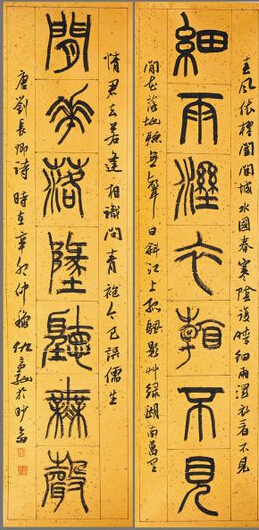 春風倚棹闔閭城水國春寒陰復晴細雨溼衣看不見
細雨溼衣看不見
閒花落地聽無聲日斜江上孤帆影艸綠湖南萬里
情君去若逢相識問青袍今已誤儒生
閒花落墬聽無聲
唐劉長卿詩時在辛卯仲秋